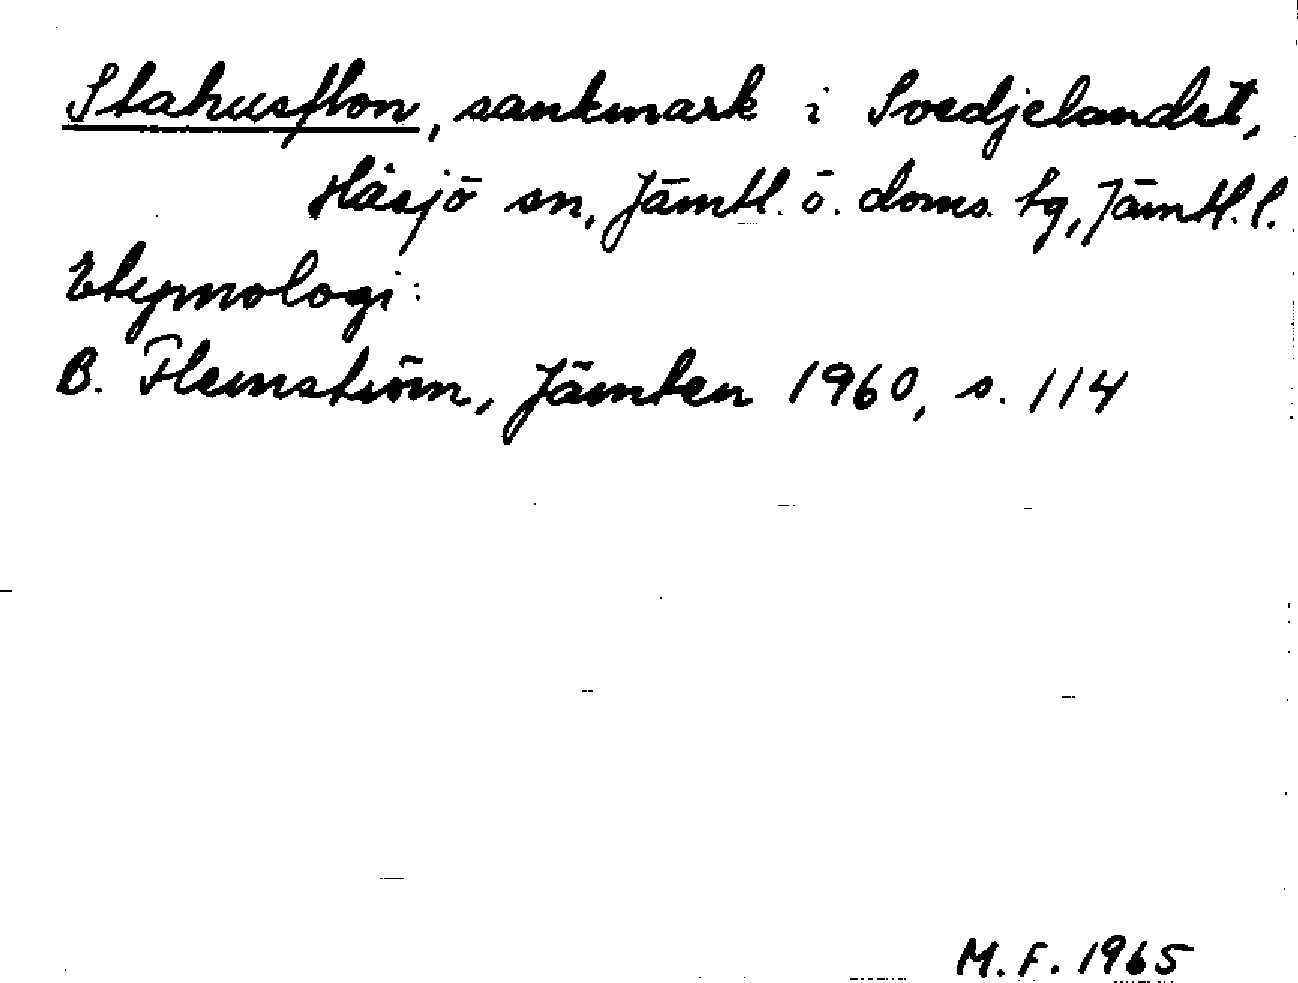 Stahusflon, sankmark i Svedjelandet,
Håsjö sn, Jämtl. ö. doms. tg, Jämtl. l.
Etymologi:
B. Flemström, Jämten 1960, s. 114
M.F. 1965